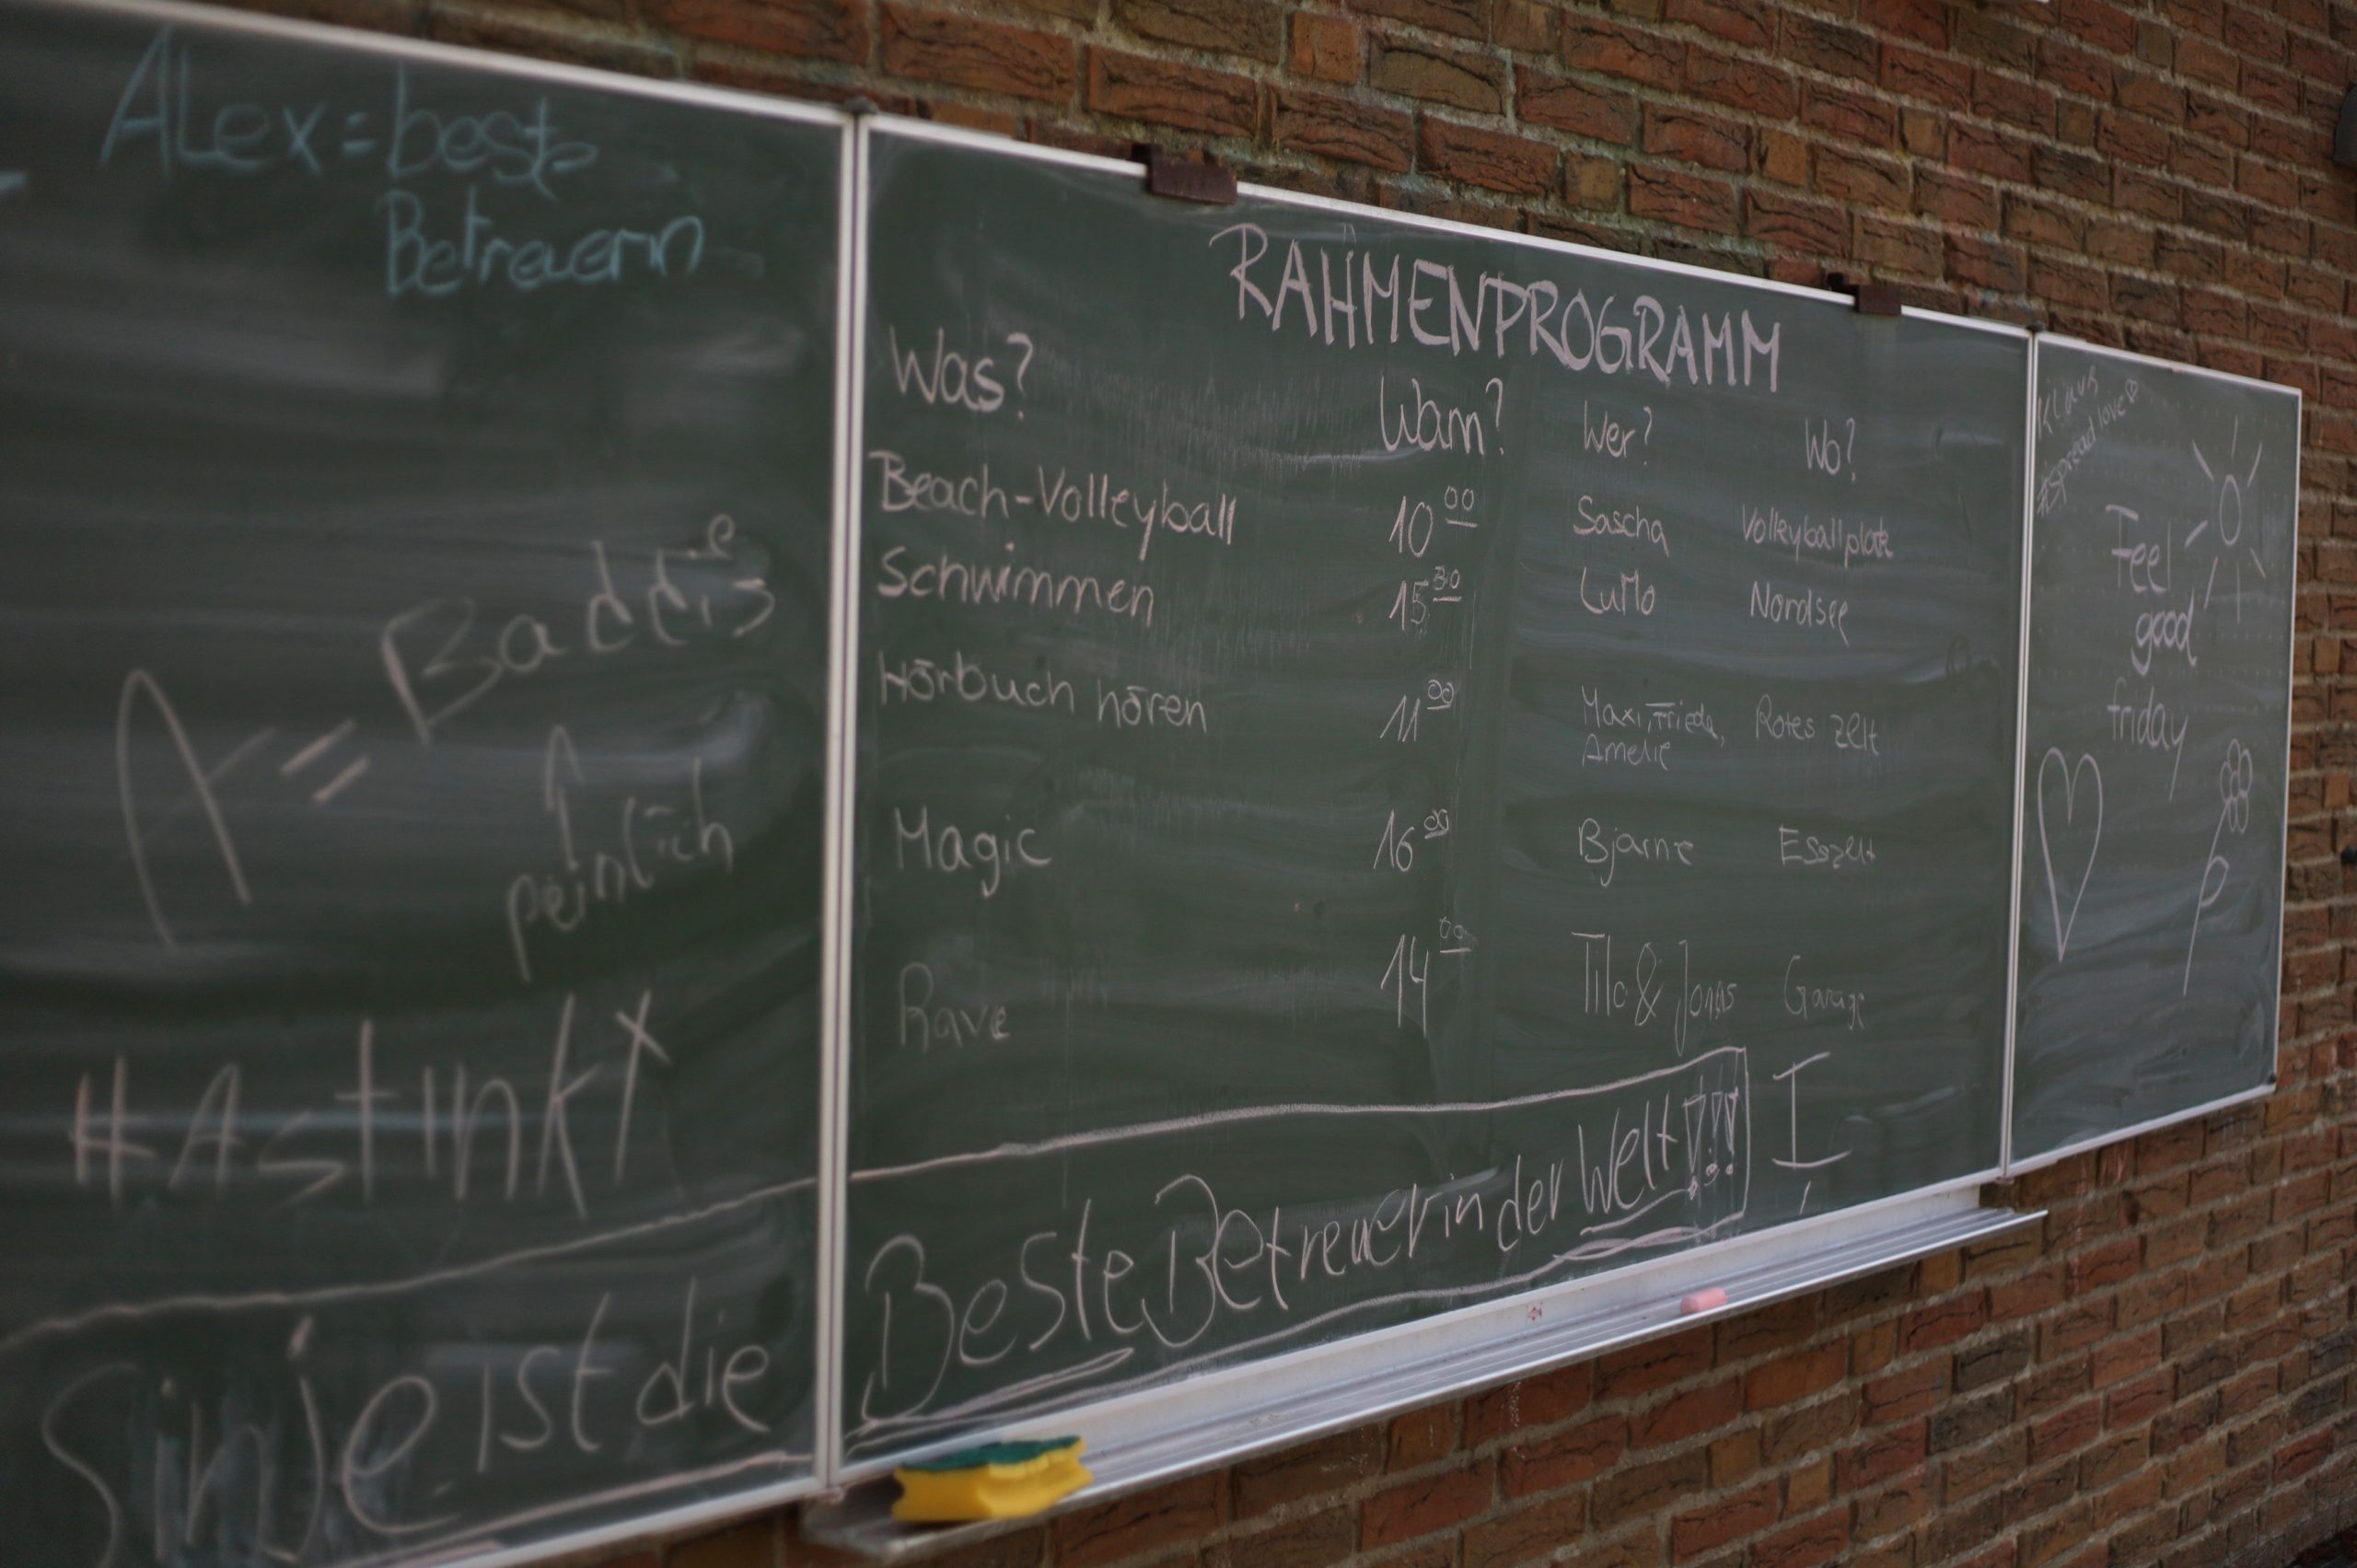 ALex = beste
Betreuern
A = Baddis
e
peinlich
#Astinkt
Sinje ist die
RAHMENPROGRAMM
Was? Wann? Wer? Wo?
Beach-Volleyball 10 00 Sascha Volleyballplatz
Schwimmen 15 30 LuMo Nordsee
Hörbuch hören 11 00 Maxi, Frieda, Rotes Zelt
Amelie
Magic 16 00 Bjarne Esszelt
Rave 14 00 Tilo & Jonas Garage
Beste Betreuerin der Welt!!!
I
Klaus
#spread love
Feel
good
friday